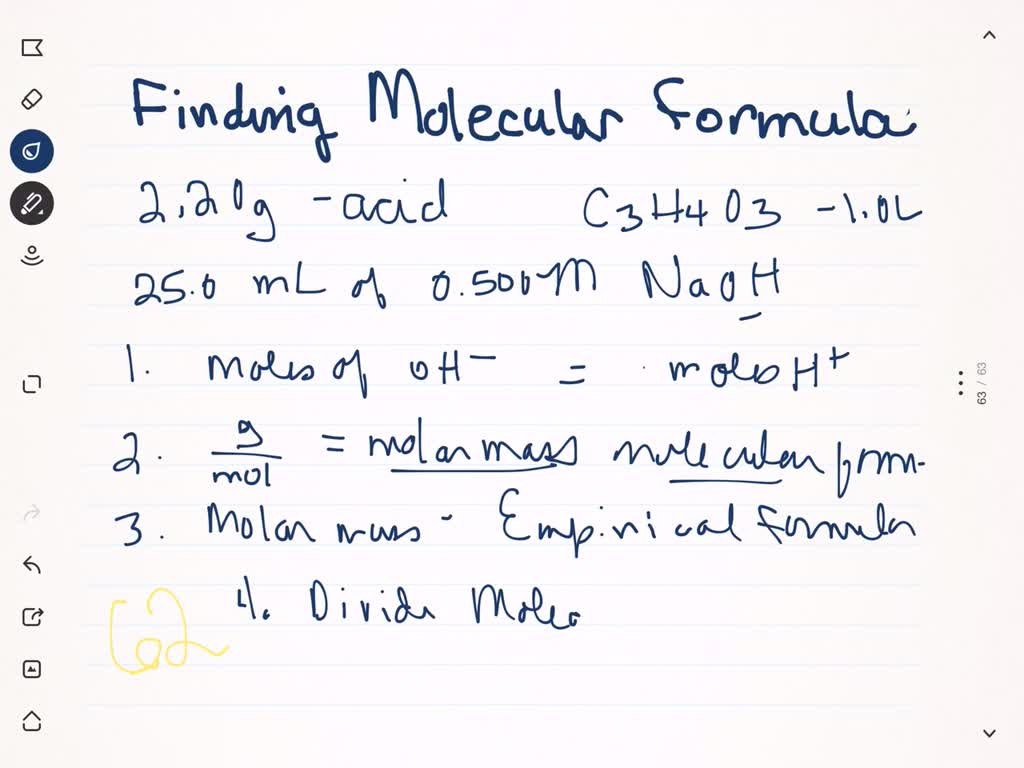 Finding Molecular Formula.
2.20g - acid C3H4O3 - 1.0L
25.0 mL of 0.500M NaOH
1. moles of OH- = moles H+
2. g/mol = molar mass molecular form.
3. Molar mass - Empirical formula
4. Divide Molec
62
63 / 63